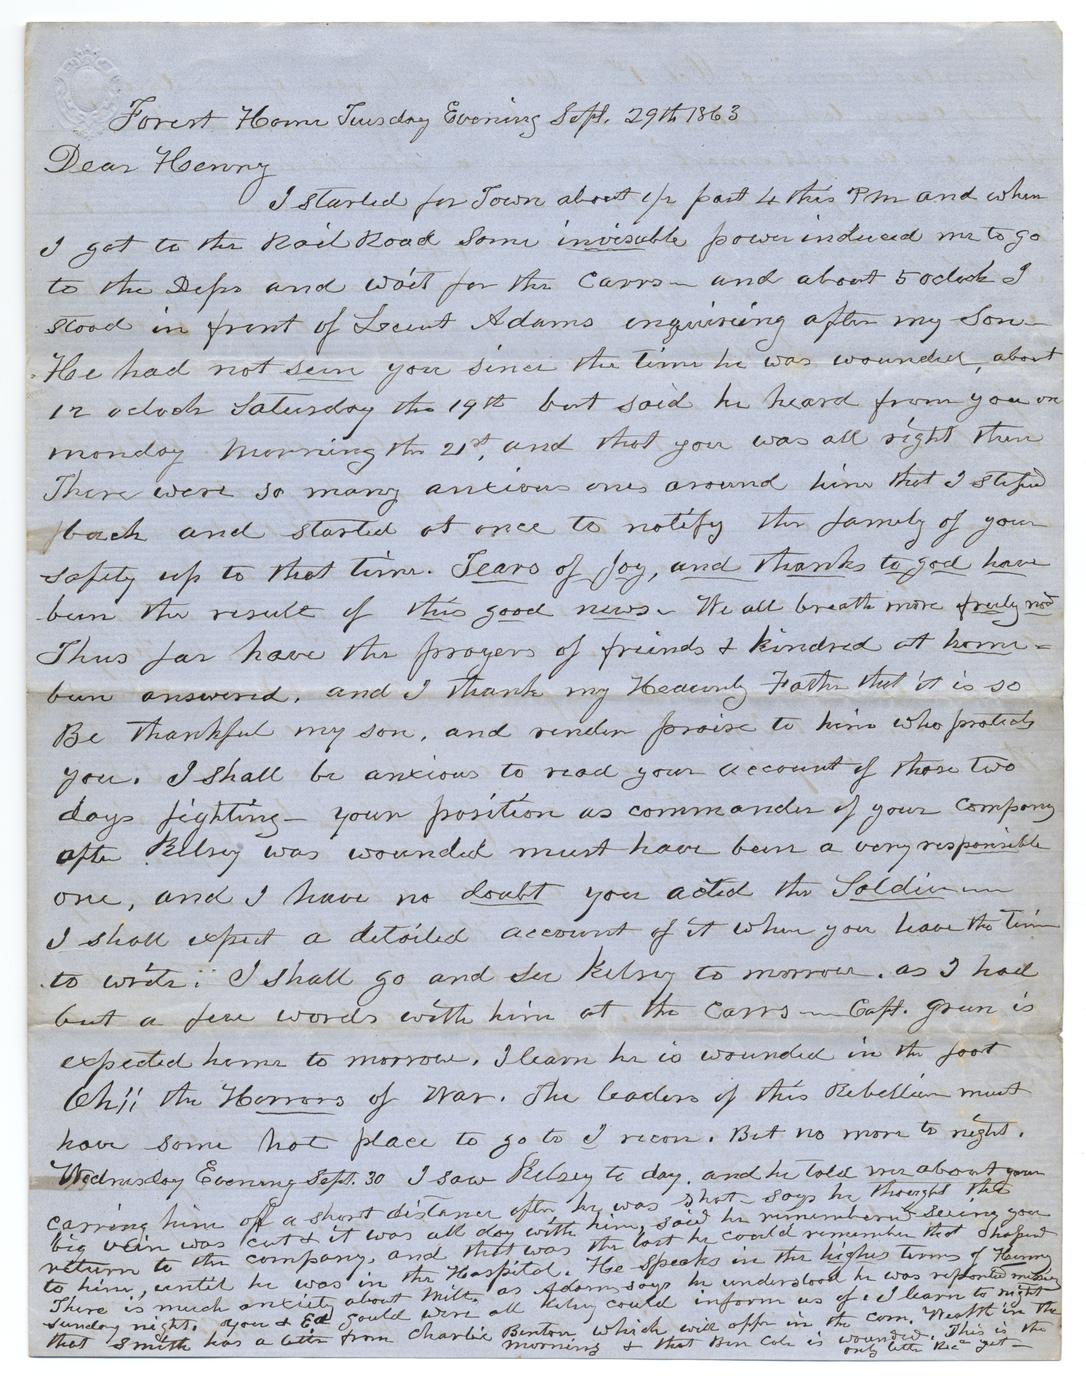 Forest Home Tuesday Evening Sept. 29th 1863
Dear Henry
I started for Town about 1/2 past 4 this PM and when
I got to the Rail Road some invisable power induced me to go
to the Depo and wait for the Carrs — and about 5 oclock I
stood in front of Leeut Adams enquireing after my Son —
He had not seen you since the time he was wounded, about
12 oclock Saturday the 19th but said he heard from you on
monday Morning the 21st, and that you was all right then
There were so many anxious ones around him that I steped
back and started at once to notify the family of your
safety up to that time. Tears of Joy, and thanks to god have
been the result of this good news — We all breath more freely now
Thus far have the prayers of friends & kindred at home -
been answered, and I thank my Heavenly Father that it is so
Be thankful my son, and render praise to him who protects
you. I shall be anxious to read your account of those two
days fighting — your position as commander of your company
after Kelsey was wounded must have been a very responsible
one, and I have no doubt you acted the Soldier —
I shall expect a detailed account of it when you have the time
to write: I shall go and see Kelsey to morrow. as I had
but a few words with him at the Carrs — Capt. Green is
expected home to morrow. I learn he is wounded in the foot
Oh!! the Horrors of War. The leaders of this Rebellion must
have some hot place to go to I recon. But no more to night.
Wednesday Evening Sept. 30 I saw Kelsey to day. and he told me about your
carring him off a short distance after he was shot — says he thought the
big vein was cut & it was all day with him, said he remembered seeing you
return to the company, and that was the last he could remember that
to him, until he was in the Hospital. He speaks in the highes terms of Henny
There is much anxiety about Milt. as Adams says he understood he was reported missing
Sunday night. you & Ed Gould were all Kelsey could inform us of. I learn to night
that Smith has a letter from Charlie Benton which will appr in the com. in the
morning & that Ben Cole is wounded. This is the
only letter Recd yet —